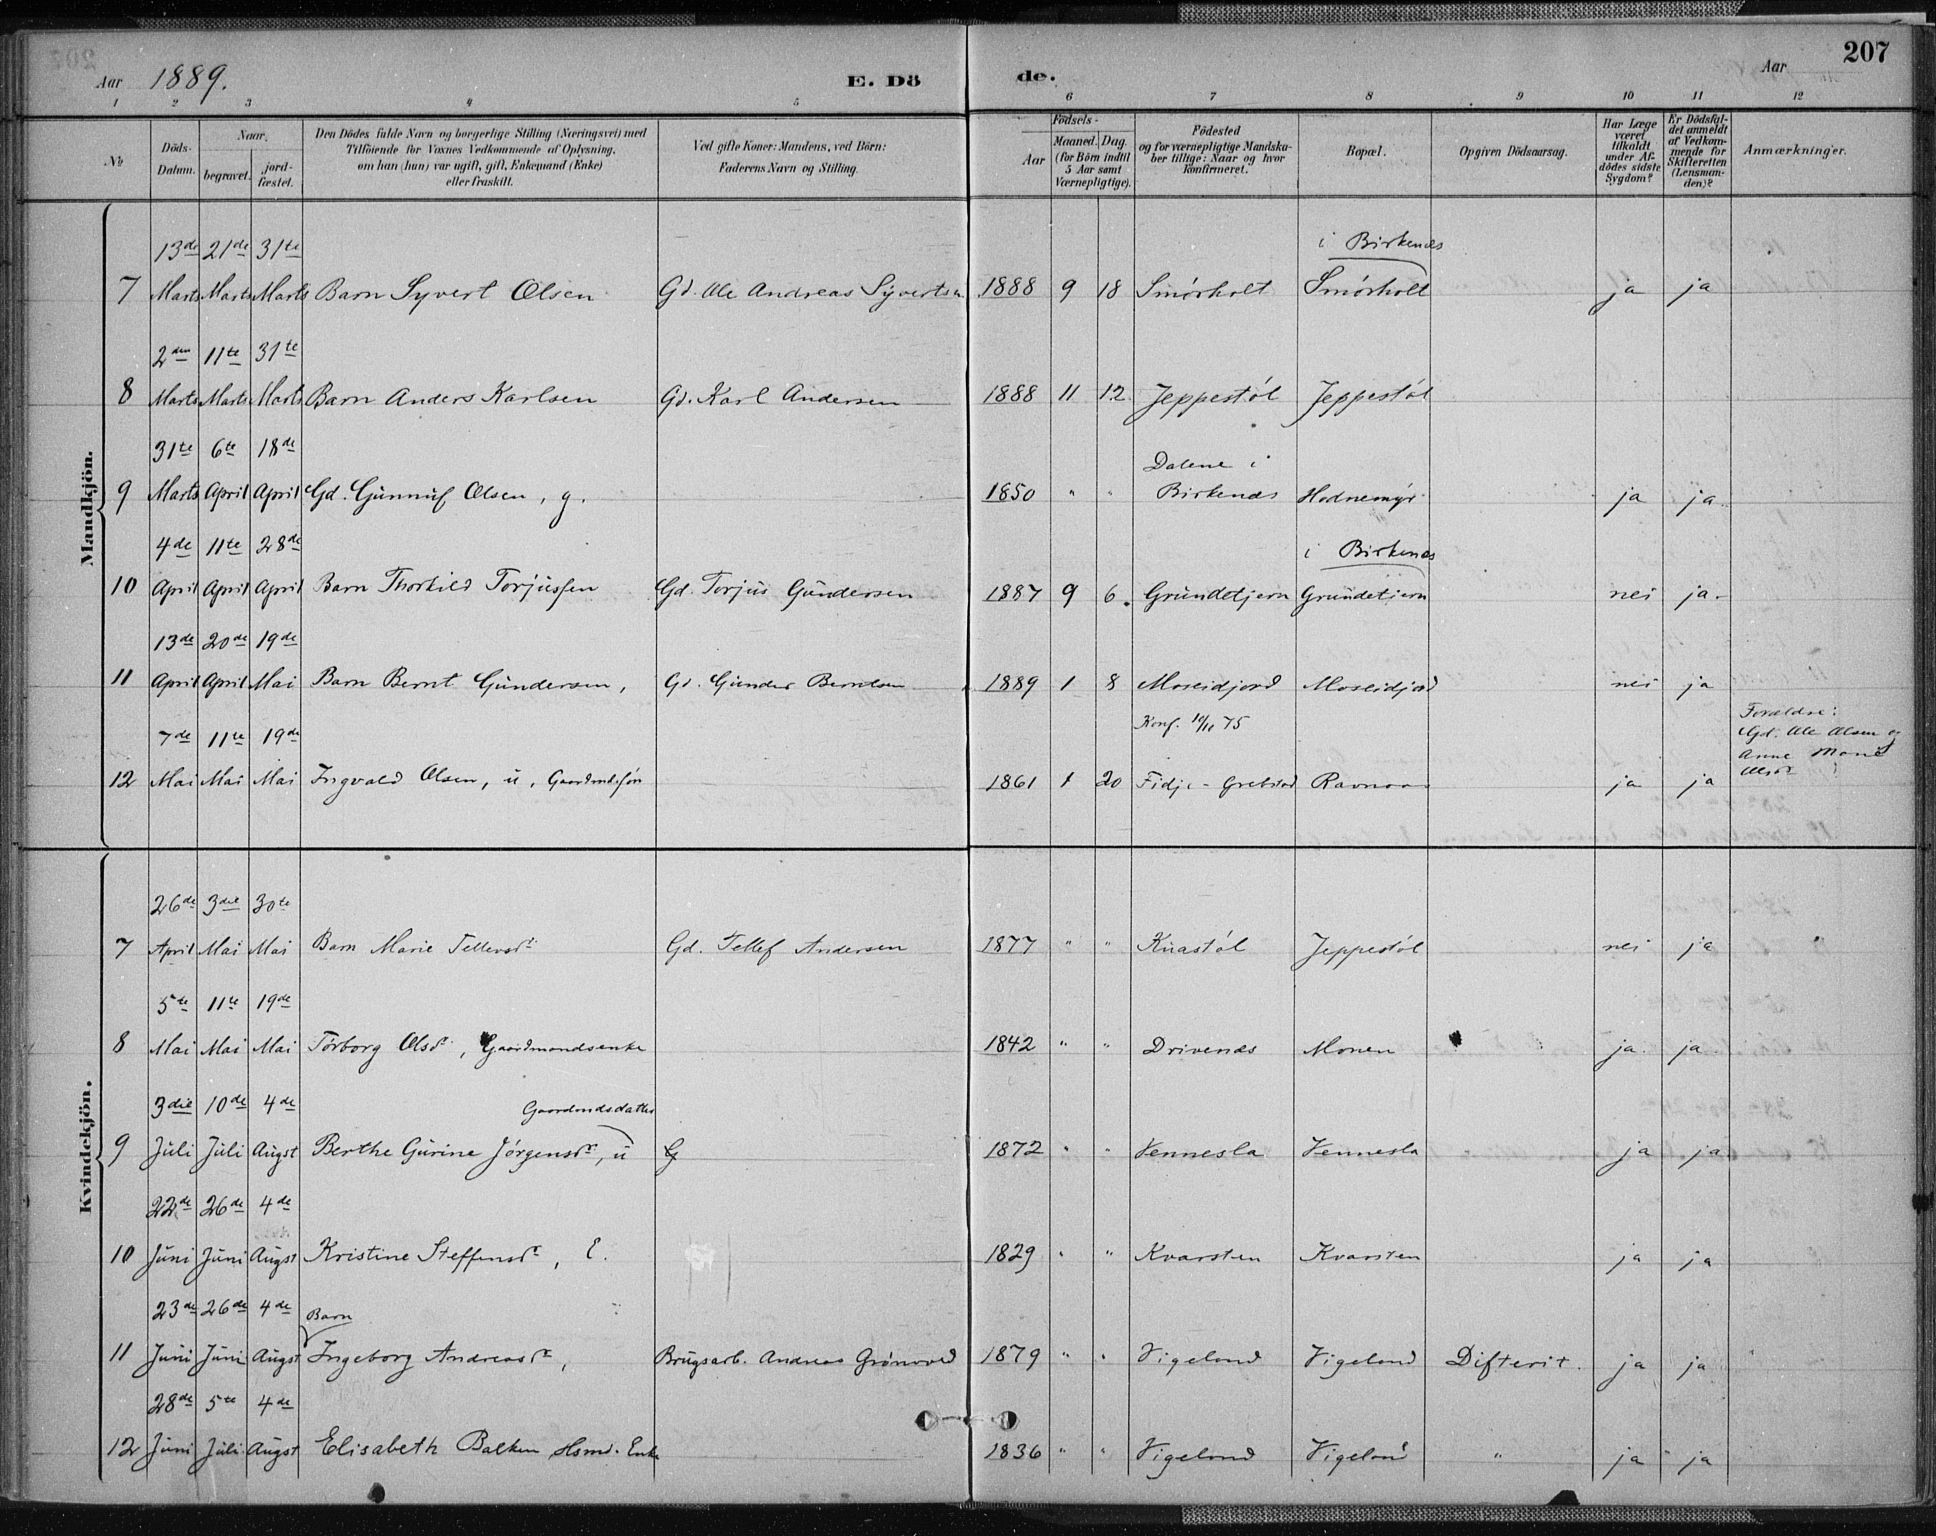 207
Aar 1889. E. Dö de. Aar
1 2 3 4 5 6 7 8 9 10 11 12
№
Döds-Datum.
Naar.
begravet.
jord-fæstet.
Den Dödes fulde Navn og borgerlige Stilling (Næringsvei) med
Tilföiende for Voxnes Vedkommende af Oplysning,
om han (hun) var ugift, gift, Enkemand (Enke)
eller fraskilt.
Ved gifte Koner: Mandens, ved Börn:
Faderens Navn og Stilling.
Födsels-
Aar
Maaned. Dag
(for Börn indtil
5 Aar samt
Værnepligtige).
Födested
og for værnepligtige Mandska-
ber tillige: Naar og hvor
konfirmeret.
Bopæl.
Opgiven Dödsaarsag.
Har Læge
været
tilkaldt
under Af-
dödes sidste
Sygdom?
Er Dödsfal-
det anmeldt
af Vedkom-
mende for
Skifteretten
(Lensman-
den)?
Anmærkninger.
Mandkjön.
13de 21de 31te i Birkenæs
7 Marts Marts Marts Barn Syvert Olsen Gd. Ole Andreas Syvertsen 1888 9 18 Smórholt Smórholt ja ja
2den 11te 31te
8 Marts Marts Marts Barn Anders Karlsen Gd. Karl Andersen 1888 11 12 Jeppestól Jeppestól
31te 6te 18de Dalene i
9 Marts April April Gd. Gunnuf Olsen, g. 1850 " " Birkenæs Hodnemyr ja ja.
4de 11te 28de i Birkenæs
10 April April April Barn Thorkild Torjussen Gd. Torjus Gundersen 1887 9 6. Grundetjern Grundetjern nei ja.
13de 20de 19de
11 April April Mai Barn Bernt Gundersen, Gd. Gunder Berntsen 1889 1 8 Moseidjord Moseidjord nei ja
7de 11te 19de Konf. 75 Forældre:
Gd. Ole Olsen og
Anne
12 Mai Mai Mai Ingvald Olsen, u, 1861 1 20 Fidje - Ravnaas ja ja
Kvindekjön.
26de 3die 30te
7 April Mai Mai Barn Marie Tellevsdr Gd. Tellef Andersen 1877 " " Knastól Jeppestól nei ja "
5te 11te 19de
8 Mai Mai Mai Torborg Olsdr, Gaardmandsenke 1842 " " Drivenæs Monen ja. ja.
3die 10de 4de Gaardmdsdatter
9 Juli Juli Augst Berthe Gurine Jórgensdr, u G 1872 " " Vennesla Vennesla ja ja
22de 26de 4de
10 Juni Juni Augst Kristine Steffensdr, E. 1829 " " Kvarsten Kvarsten ja ja
23de 26de 4de Barn
11 Juni Juni Augst Ingeborg Andreasdr, Brugsarb. Andreas Grónvold 1879 " " Vigeland Vigeland Difterit. ja ja
28de 5te 4de
12 Juni Juli Augst Elisabeth Balken Hsmd. Enke 1836 " " Vigeland Vigeland " ja ja